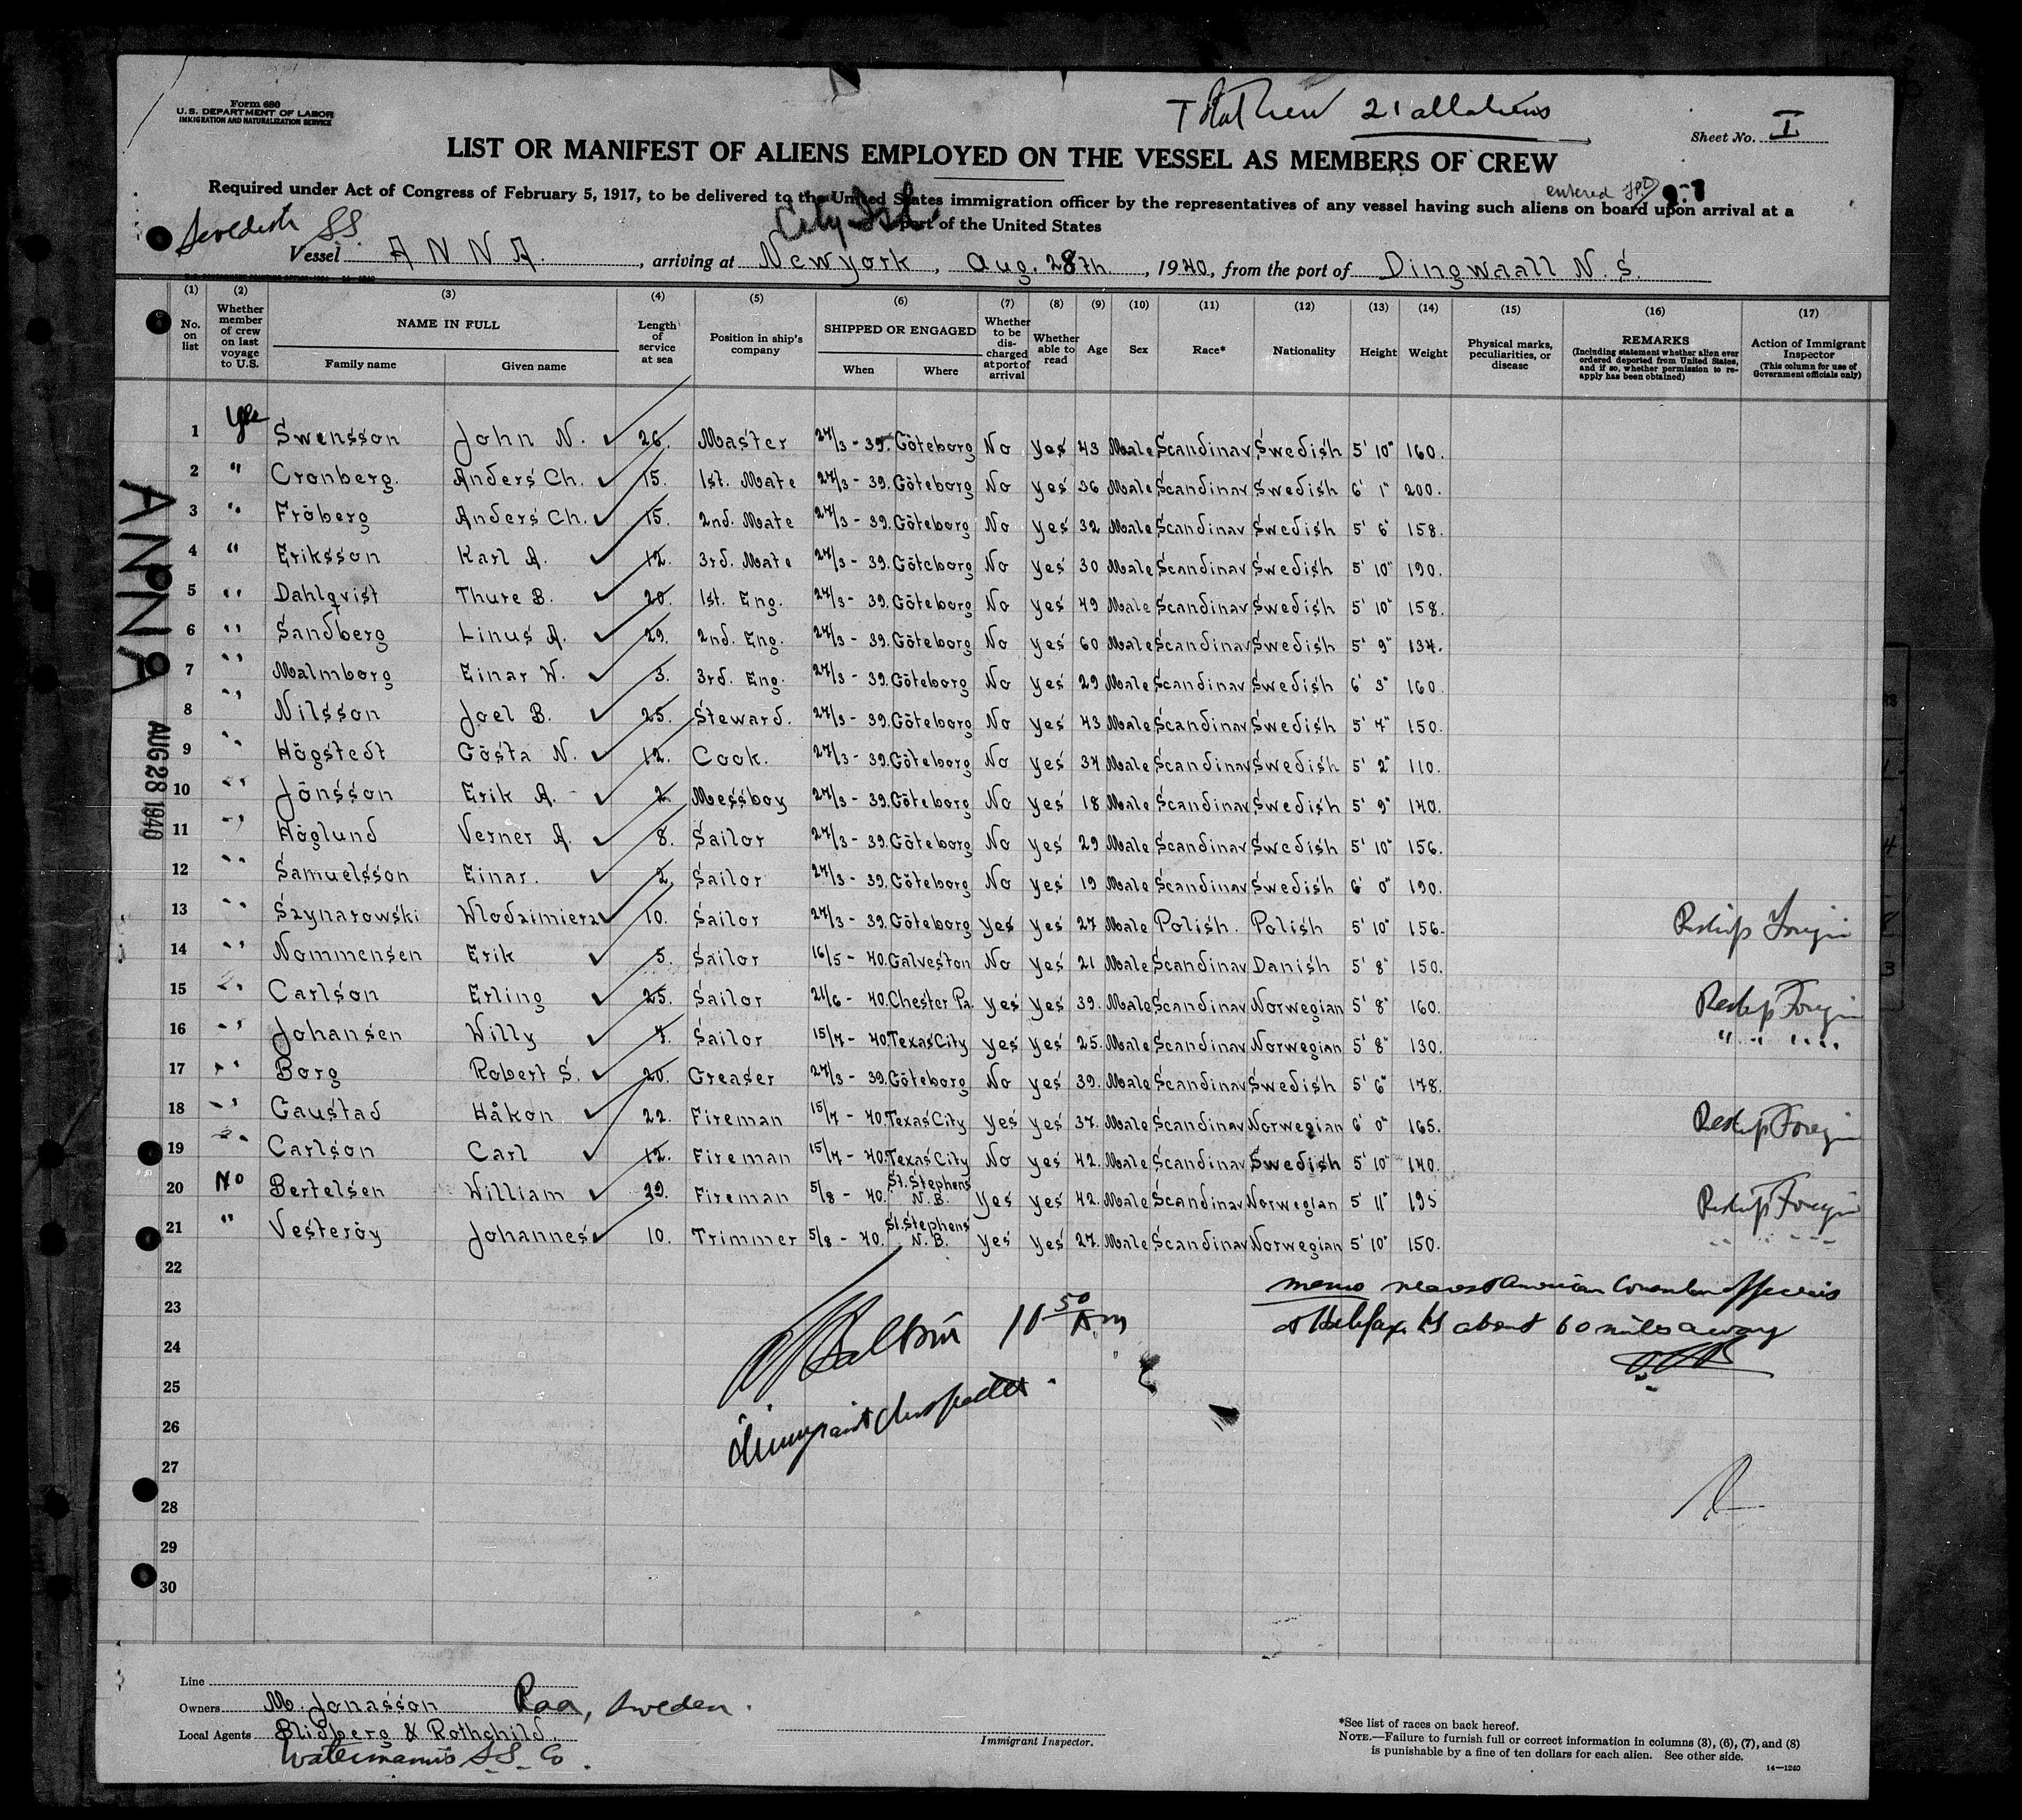 Form 680
U.S. DEPARTMENT OF LABOR
IMMIGRATION AND NATURALIZATION SERVICE
21 all aliens
Sheet No. I
LIST OR MANIFEST OF ALIENS EMPLOYED ON THE VESSEL AS MEMBERS OF CREW
entered
Required under Act of Congress of February 5, 1917, to be delivered to the United States immigration officer by the representatives of any vessel having such aliens on board upon arrival at a
port of the United States
Swedish SS
City Isl
Vessel ANNA., arriving at Newyork, Aug. 28th, 1940, from the port of Dingwaall N.S.
(1) (2) (3) (4) (5) (6) (7) (8) (9) (10) (11) (12) (13) (14) (15) (16) (17)
No. on list
Whether member of crew on last voyage to U.S.
NAME IN FULL
Family name Given name
Length of service at sea
Position in ship's company
SHIPPED OR ENGAGED
When Where
Whether to be discharged at port of arrival
Whether able to read
Age
Sex
Race*
Nationality
Height
Weight
Physical marks, peculiarities, or disease
REMARKS
(Including statement whether alien ever ordered deported from United States, and if so, whether permission to reapply has been obtained)
Action of Immigrant Inspector
(This column for use of Government officials only)
1 Yes Swensson John N. 26. Master 27/3 - 39. Göteborg No yes 43 Male Scandinav Swedish 5' 10" 160.
2 " Cronberg. Anders Ch. 15. 1st. Mate 27/3 - 39. Göteborg No yes 36 Male Scandinav Swedish 6' 1" 200.
3 " Fröberg Anders Ch. 15. 2nd. Mate 27/3 - 39. Göteborg No yes 32 Male Scandinav Swedish 5' 6" 158.
4 " Eriksson Karl A. 12. 3rd. Mate 27/3 - 39. Göteborg No yes 30 Male Scandinav Swedish 5' 10" 190.
5 " Dahlqvist Thure B. 20. 1st. Eng. 27/3 - 39. Göteborg No yes 49 Male Scandinav Swedish 5' 10" 158.
6 " Sandberg Linus A. 29. 2nd. Eng. 27/3 - 39. Göteborg No yes 60 Male Scandinav Swedish 5' 9" 134.
7 " Malmborg Einar W. 3. 3rd. Eng. 27/3 - 39. Göteborg No yes 29 Male Scandinav Swedish 6' 3" 160.
8 " Nilsson Joel B. 25. Steward. 27/3 - 39. Göteborg No yes 43 Male Scandinav Swedish 5' 7" 150.
9 " Högstedt Gösta N. 12. Cook. 27/3 - 39. Göteborg No yes 34 Male Scandinav Swedish 5' 2" 110.
10 " Jönsson Erik A. 2 Messboy 27/3 - 39. Göteborg No yes 18 Male Scandinav Swedish 5' 9" 140.
11 " Höglund Verner A. 8. Sailor 27/3 - 39. Göteborg No yes 29 Male Scandinav Swedish 5' 10" 156.
12 " Samuelsson Einar. 2. Sailor 27/3 - 39. Göteborg No yes 19 Male Scandinav Swedish 6' 0" 190.
13 " Szynarowski Wlodzimierz 10. Sailor 27/3 - 39. Göteborg yes yes 27 Male Polish. Polish 5' 10" 156. Reship Foreign
14 " Nommensen Erik 5. Sailor 16/5 - 40. Galveston No yes 21 Male Scandinav Danish 5' 8" 150.
15 " Carlson Erling 25. Sailor 21/6 - 40. Chester Pa. yes yes 39. Male Scandinav Norwegian 5' 8" 160. Reship Foreign
16 " Johansen Willy 7. Sailor 15/7 - 40. Texas City yes yes 25. Male Scandinav Norwegian 5' 8" 130. " " " "
17 " Borg Robert S. 20. Greaser 27/3 - 39. Göteborg No yes 39. Male Scandinav Swedish 5' 6" 178.
18 " Gaustad Håkon 22. Fireman 15/7 - 40. Texas City yes yes 37. Male Scandinav Norwegian 6' 0" 165. Reship Foreign
19 " Carlson Carl 12. Fireman 15/7 - 40. Texas City No yes 42. Male Scandinav Swedish 5' 10" 140.
20 No Bertelsen William 29. Fireman 5/8 - 40. St. Stephens N.B. yes yes 42. Male Scandinav Norwegian 5' 11" 195 Reship Foreign
21 " Vesteröy Johannes 10. Trimmer 5/8 - 40. St. Stephens N.B. yes yes 27. Male Scandinav Norwegian 5' 10" 150. " " "
22
23
24
25
26
27
28
29
30
memo nearest American Consular officer is
at Halifax NS about 60 miles away
10 50 Am
Immigrant Inspector.
ANNA
AUG 28 1940
Line
Owners M. Jonasson Raa, Sweden.
Local Agents Blidberg & Rothchild.
Watermann's S.S. Co.
Immigrant Inspector.
*See list of races on back hereof.
NOTE.—Failure to furnish full or correct information in columns (3), (6), (7), and (8)
is punishable by a fine of ten dollars for each alien. See other side.
14—1240